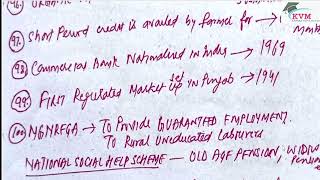 96. ORGANIC
KVM
97. Short Period credit is availed by farmer for →
98. Commercial Bank Nationalized in India → 1969
99. FIRST Regulated Market set up in Punjab → 1941
100. MGNREGA → To Provide GUARANTEED EMPLOYMENT.
To Rural Uneducated Labourers
NATIONAL SOCIAL HELP SCHEME — OLD AGE PENSION, WIDOW
Pension